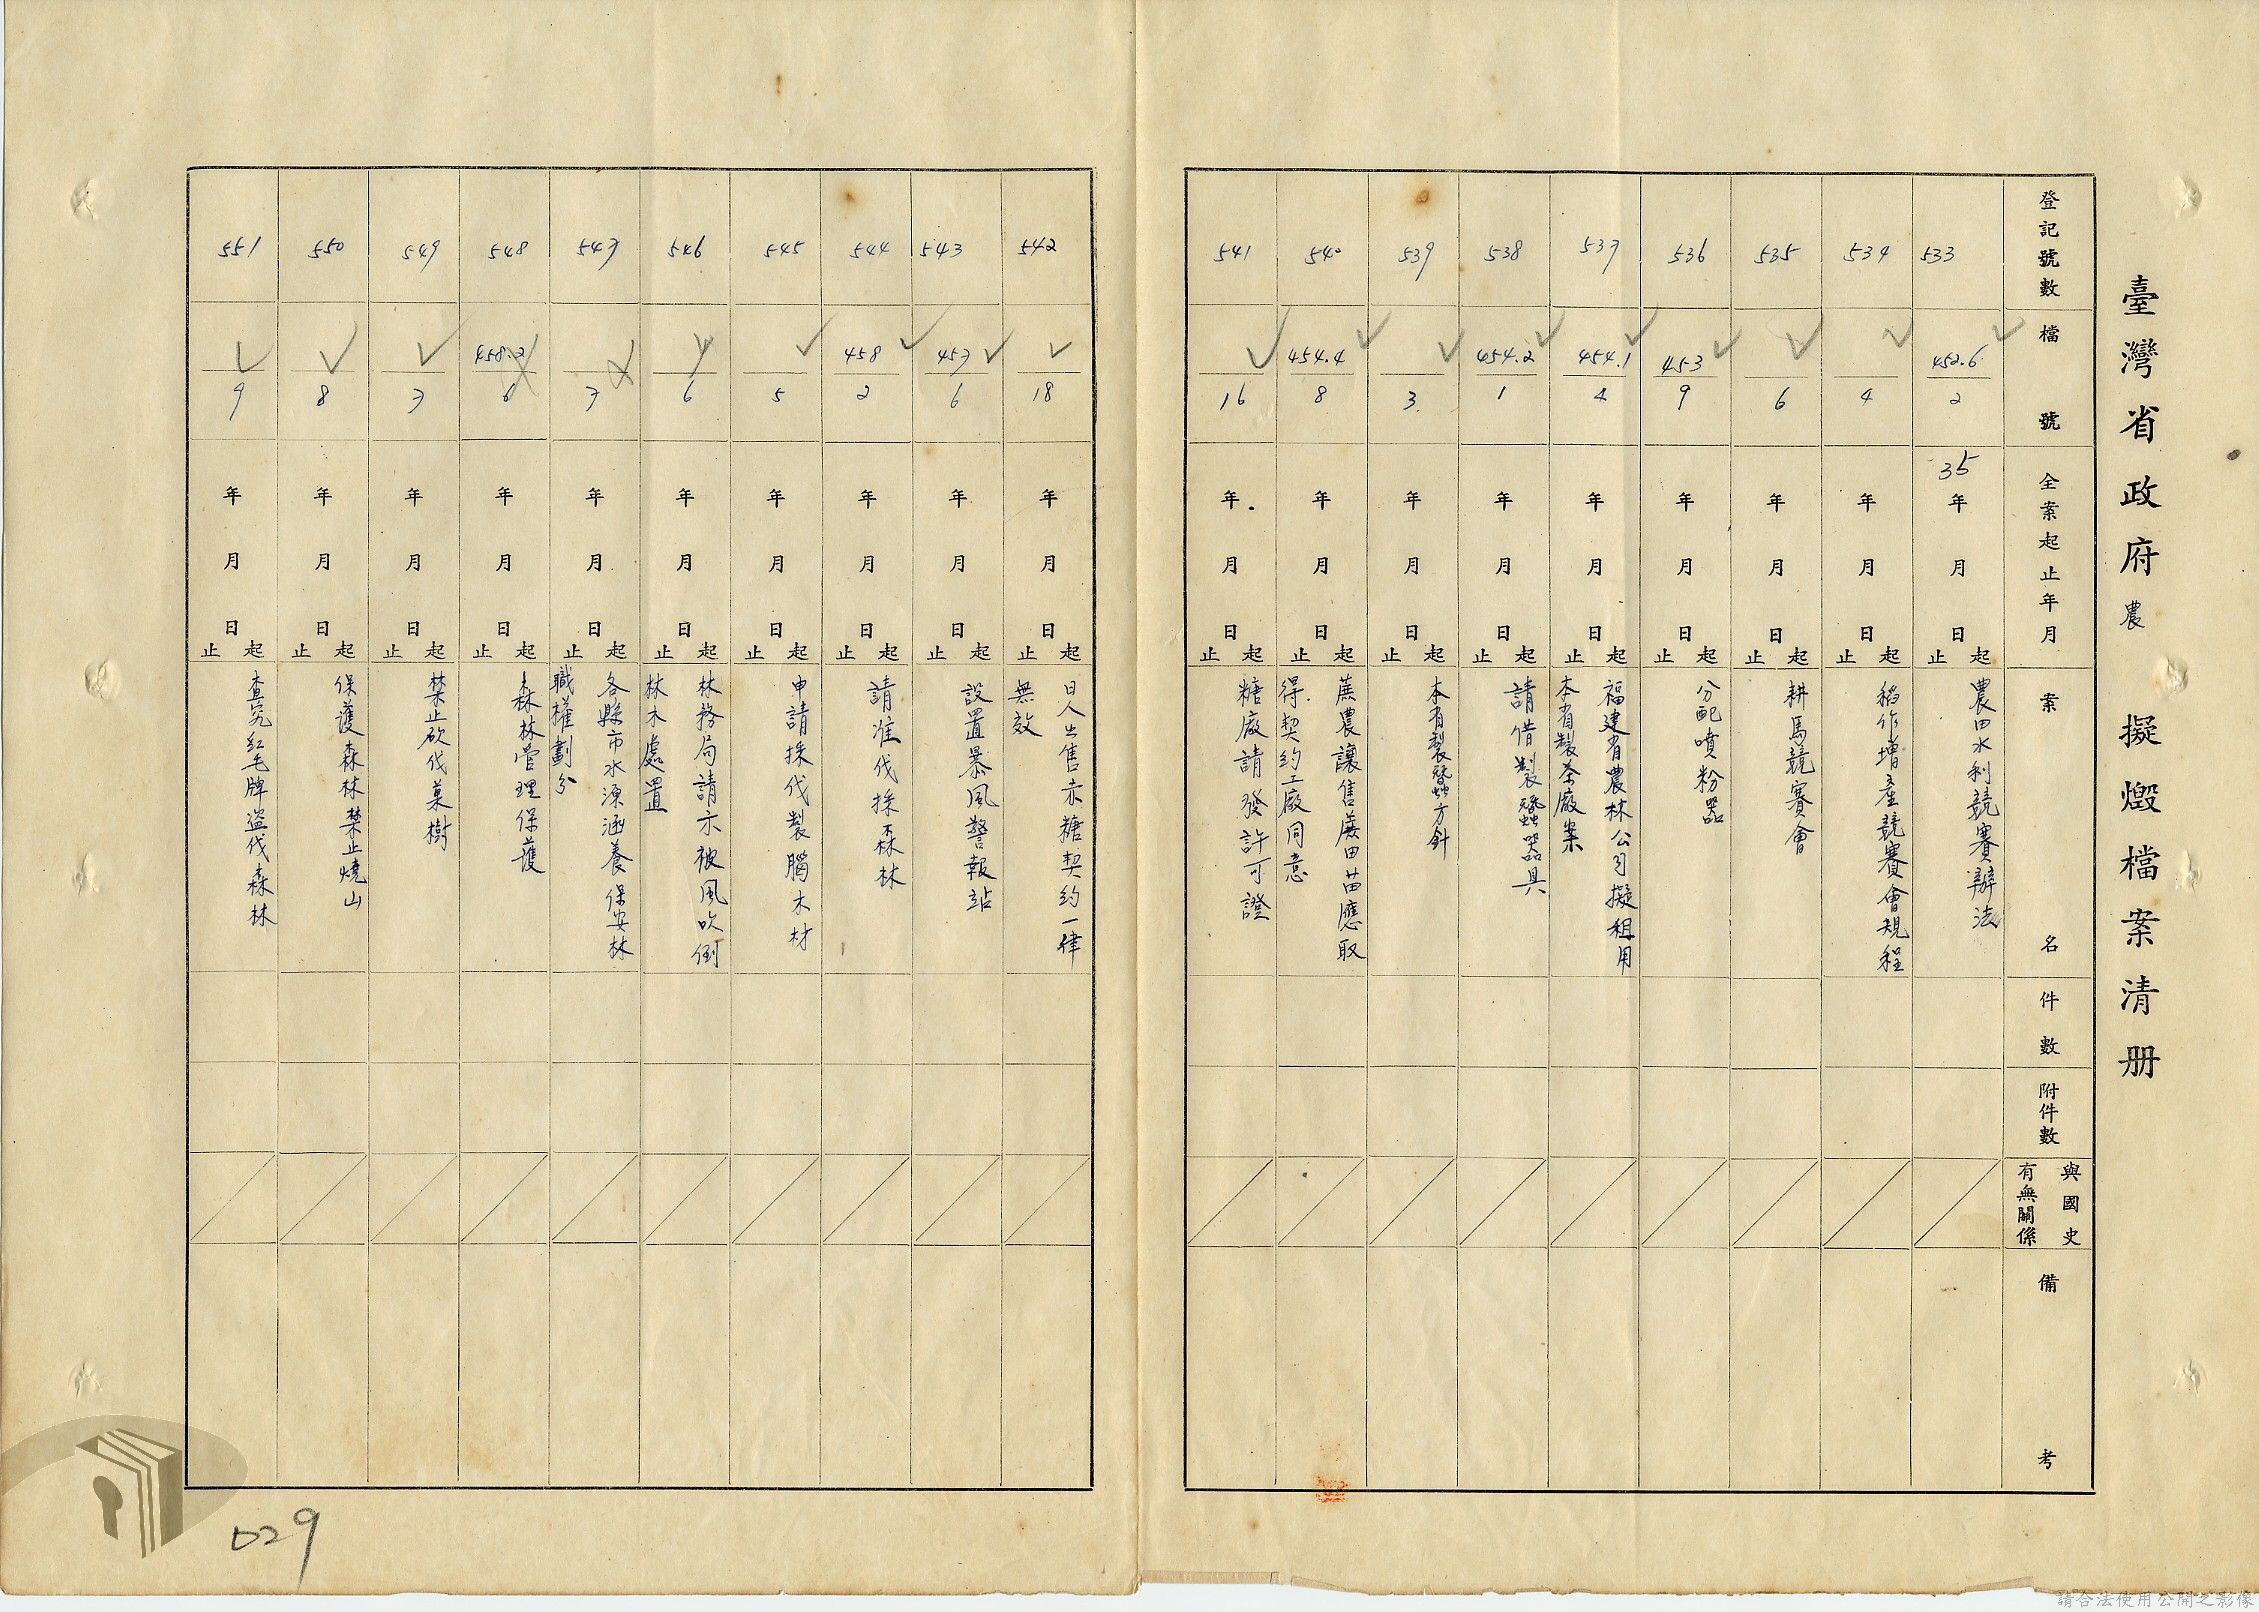 臺灣省政府農 擬燬檔案清册
登記號數
檔號
全案起止年月
案名
件數
附件數
與國史有無關係
備考
533
452.6
2
35年月日起止
農田水利競賽辦法
534
4
年月日起止
稻作增產競賽會規程
535
6
年月日起止
耕馬競賽會
536
453
9
年月日起止
分配噴粉器
537
454.1
4
年月日起止
福建省農林公司擬租用
本省製茶廠案
538
454.2
1
年月日起止
請借製蠶器具
539
3
年月日起止
本省製蠶方針
540
454.4
8
年月日起止
蔗農讓售蔗田苗應取
得契約工廠同意
541
16
年月日起止
糖廠請發許可證
542
18
年月日起止
日人出售赤糖契約一律
無效
543
457
6
年月日起止
設置暴風警報站
544
458
2
年月日起止
請准伐採森林
545
5
年月日起止
申請採伐製腦木材
546
6
年月日起止
林務局請示被風吹倒
林木處置
547
7
年月日起止
各縣市水源涵養保安林
職權劃分
548
458.2
6
年月日起止
森林管理保護
549
7
年月日起止
禁止砍伐菓樹
550
8
年月日起止
保護森林禁止燒山
551
9
年月日起止
查究紅毛牌盜伐森林
029
請合法使用公開之影像